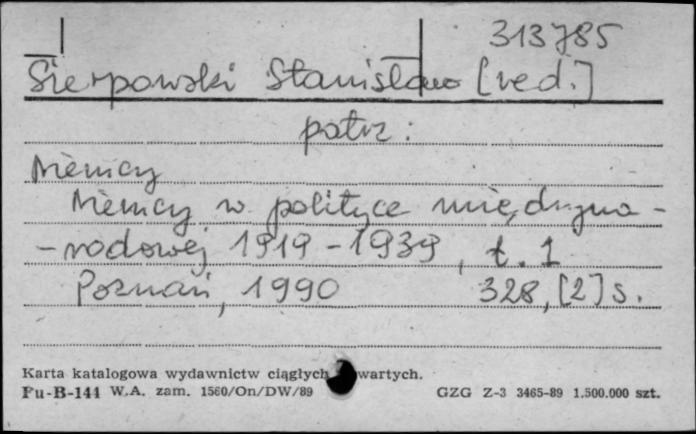 313785
Sierpowski Stanisław [red.]
patrz:
Niemcy
Niemcy w polityce międzyna-
-rodowej 1919-1939, t. 1
Poznań, 1990 328, [2] s.
Karta katalogowa wydawnictw ciągłych wartych.
Pu-B-144 W.A. zam. 1560/On/DW/89 GZG Z-3 3465-89 1.500.000 szt.